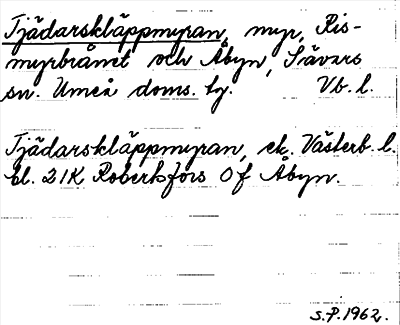 Tjädarskläppmyran, myr, Ris-
myrbrånet och Åbyn, Sävars
sn. Umeå doms. tg. Vb. l.
Tjädarskläppmyran, ek. Västerb. l.
bl. 21K Robertsfors Of Åbyn.
S.P. 1962.